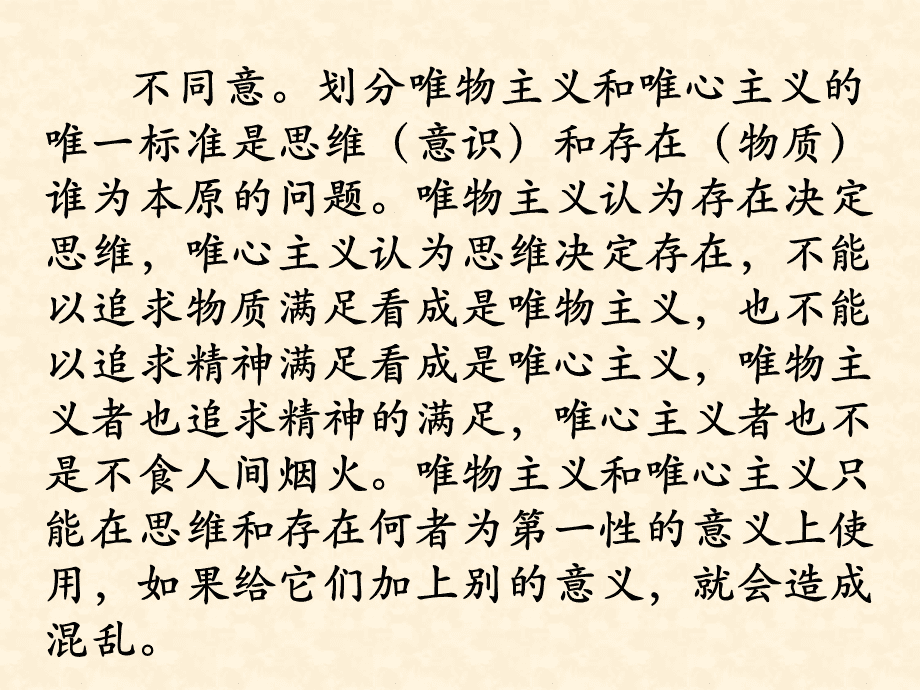 不同意。划分唯物主义和唯心主义的
唯一标准是思维（意识）和存在（物质）
谁为本原的问题。唯物主义认为存在决定
思维，唯心主义认为思维决定存在，不能
以追求物质满足看成是唯物主义，也不能
以追求精神满足看成是唯心主义，唯物主
义者也追求精神的满足，唯心主义者也不
是不食人间烟火。唯物主义和唯心主义只
能在思维和存在何者为第一性的意义上使
用，如果给它们加上别的意义，就会造成
混乱。